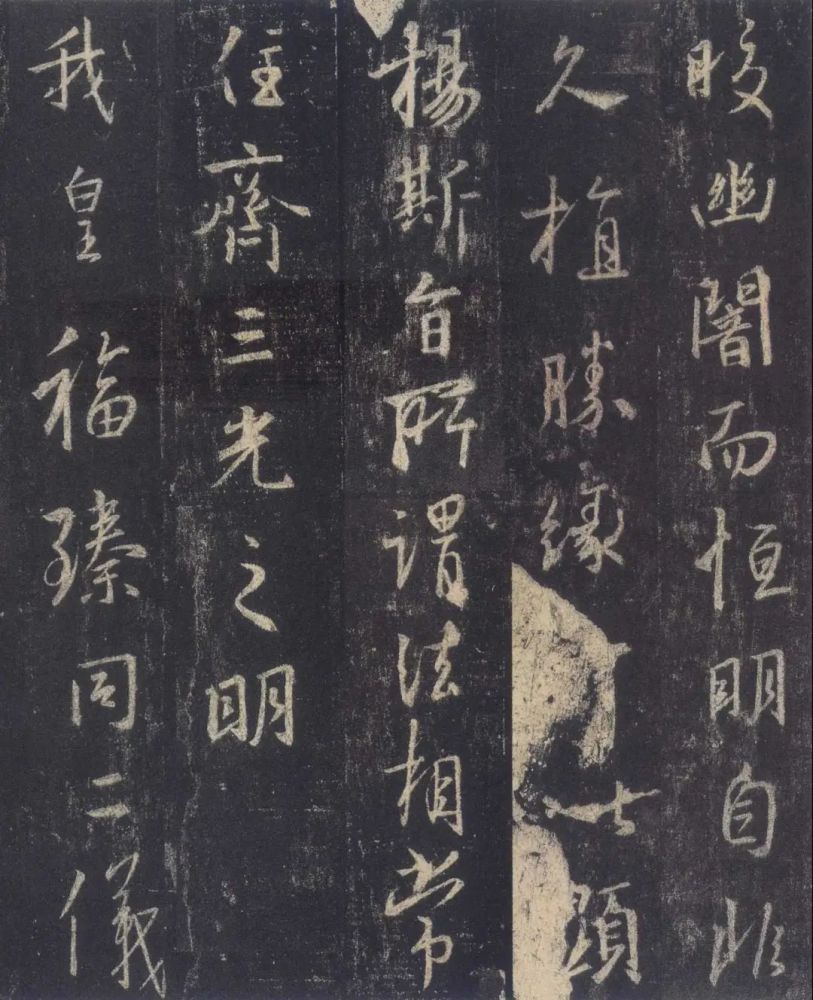 晈幽闇而恒明自非
久植勝緣以顯
揚斯旨所謂法相常
住齊三光之明
我皇福臻同二儀